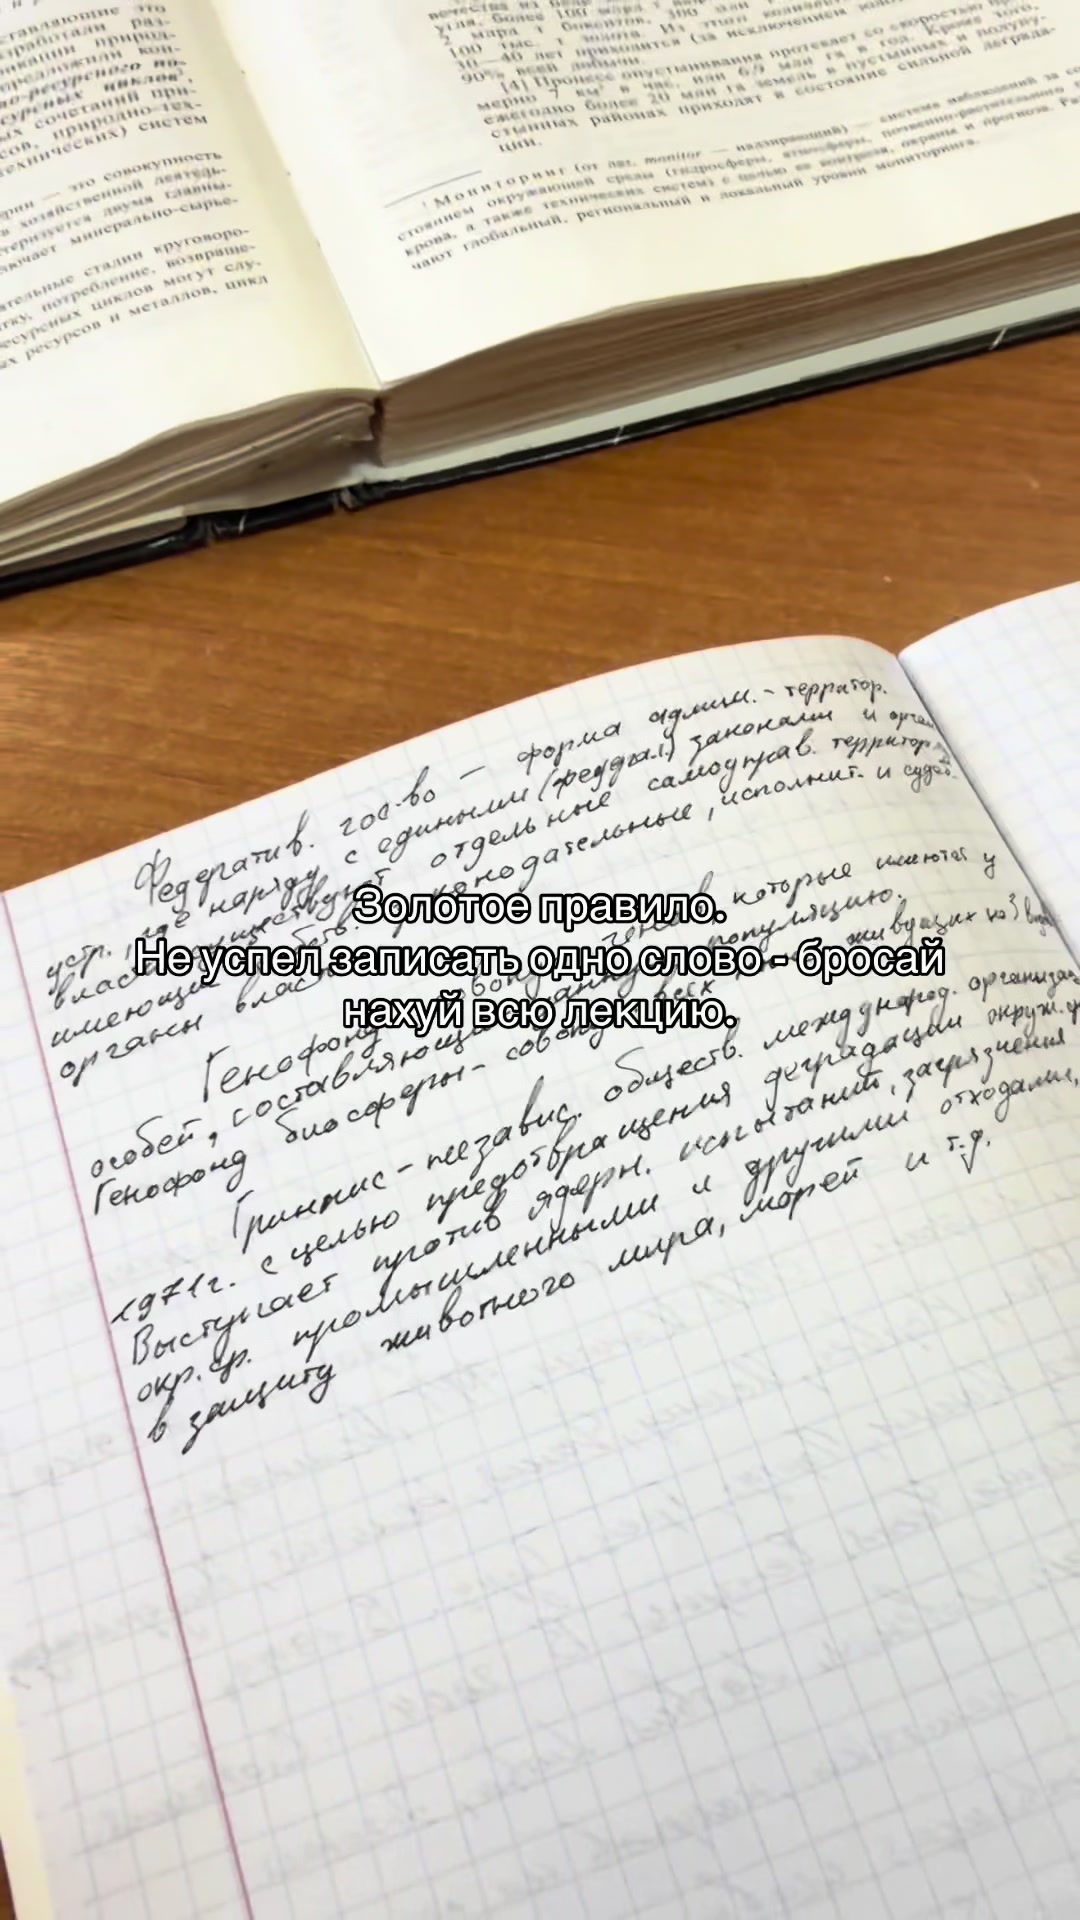 ставляющие это
работали
раз-
никации природ-
редложили кон-
но-ресурсного по-
сурсных циклов¹.
ых сочетаний при-
сов, природно-тех-
технических) систем
ерии — это совокупность
в хозяйственной деятель-
теризуется двумя главны-
лючает минерально-сырье-
ательные стадии круговоро-
тку, потребление, возвраще-
есурсных циклов могут слу-
ых ресурсов и металлов, цикл
угля, более 100 млрд т
2 млрд т бокситов, 300 млн т
100 тыс. т золота. Из этого
30—40 лет приходится (за исключением
90% всей добычи.
[4] Процесс опустынивания протекает со скоростью при-
мерно 7 км² в час, или 6,9 млн га в год. Кроме того,
ежегодно более 20 млн га земель в пустынных и полупу-
стынных районах приходят в состояние сильной деграда-
ции.
¹ Мониторинг (от лат. monitor — надзирающий) — система наблюдений за со-
стоянием окружающей среды (гидросферы, атмосферы, почвенно-растительного
крова, а также технических систем) с целью ее контроля, охраны и прогноза. Ра
чают глобальный, региональный и локальный уровни мониторинга.
Федератив. гос-во — форма админ.- территор.
устр., где наряду с едиными (федерал.) законами и орган
власти существуют отдельные самоуправ. территор
имеющие
законодательные, исполнит. и судеб.
органы власт
Золотое правило.
Не успел записать одно слово - бросай
нахуй всю лекцию.
Генофонд совок генов, которые имеются у
особей, составляющ данную популяцию.
Генофонд биосферы- совок всех живущих на З
Гринпис - независ. обществ. международ. организац
1971г. с целью предотвращения деградации окруж.
Выступает против ядерн. испытаний, загрязнения
окр.ср. промышленными и другими отходами,
в защиту животного мира, морей и т.д.